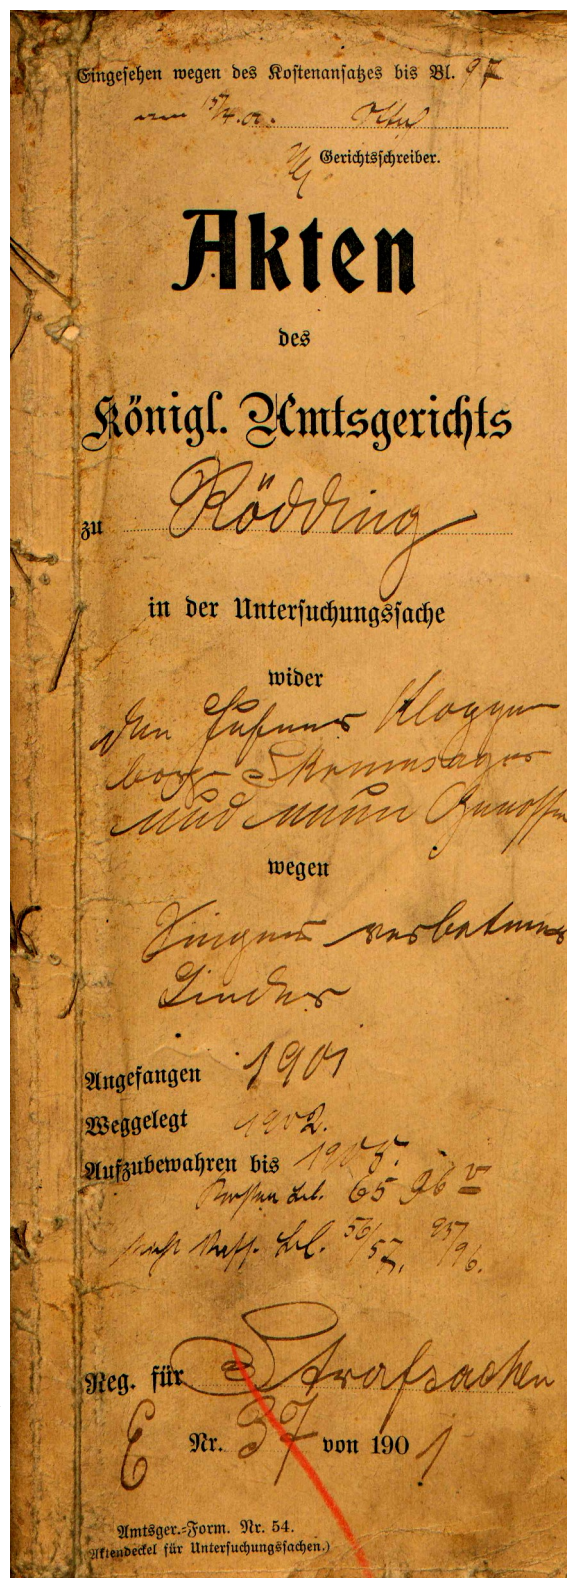 Eingesehen wegen des Kostenansatzes bis Bl. 97
am 15/4.02.
Gerichtsschreiber.
Akten
des
Königl. Amtsgerichts
zu Rödding
in der Untersuchungssache
wider
den Hufner Kloppen
borg Skrumsager
und neun Genossen
wegen
Singens verbotener
Lieder
Angefangen 1901
Weggelegt 1902.
Aufzubewahren bis 1905.
Kosten bl. 65 96 v
bl. 56/57, 95/96.
Reg. für Strafsachen
E Nr. 37 von 1901
Amtsger.-Form. Nr. 54.
(Aktendeckel für Untersuchungssachen.)